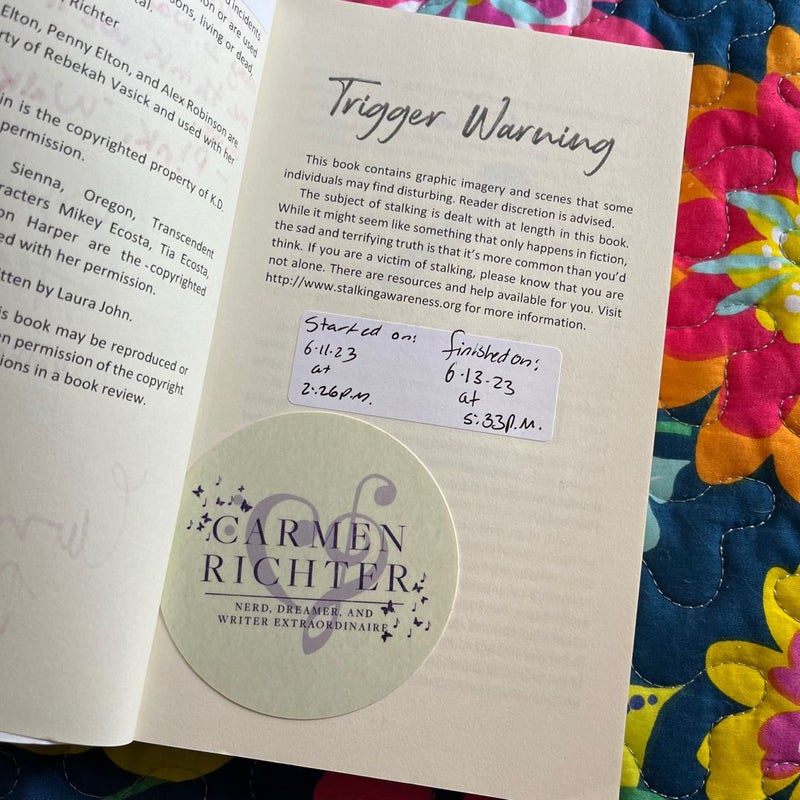 d incidents
on or are used
sons, living or dead,
tal.
Richter
Elton, Penny Elton, and Alex Robinson are
rty of Rebekah Vasick and used with her
in is the copyrighted property of K.D.
permission.
Sienna, Oregon, Transcendent
racters Mikey Ecosta, Tia Ecosta,
on Harper are the copyrighted
ed with her permission.
itten by Laura John.
is book may be reproduced or
en permission of the copyright
ions in a book review.
Trigger Warning
This book contains graphic imagery and scenes that some
individuals may find disturbing. Reader discretion is advised.
The subject of stalking is dealt with at length in this book.
While it might seem like something that only happens in fiction,
the sad and terrifying truth is that it's more common than you'd
think. If you are a victim of stalking, please know that you are
not alone. There are resources and help available for you. Visit
http://www.stalkingawareness.org for more information.
Started on:
6.11.23
at
2:26P.M.
finished on:
6.13.23
at
5:33P.M.
CARMEN
RICHTER
NERD, DREAMER, AND
WRITER EXTRAORDINAIRE